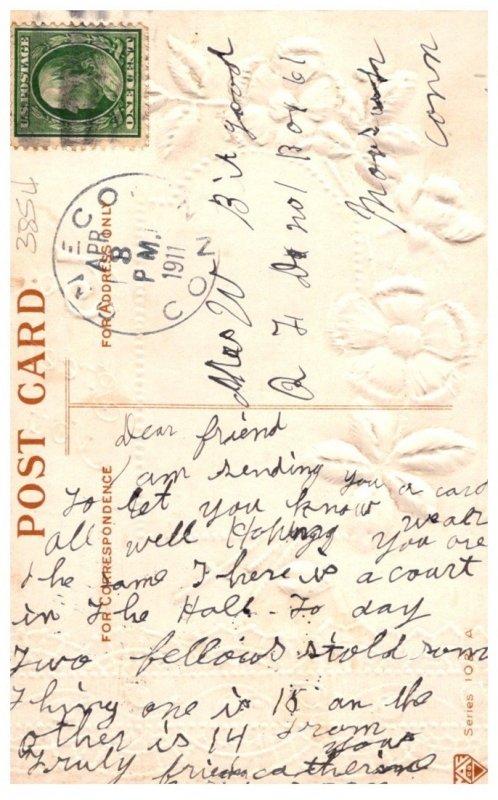 U.S. POSTAGE
ONE CENT
3854
APR
8
P M.
1911
CON
POST CARD.
FOR ADDRESS ONLY
Mrs W Bitgood
R F D no 1 Box 61
Conn
FOR CORRESPONDENCE
Dear friend
I am sending you a card
To let you know we are
all well Hoping you are
the same There is a court
in The Hall - To day
Two fellows stold som
Thing one is 15 an the
other is 14 From
your
Truly friend catherine
Series 108 A